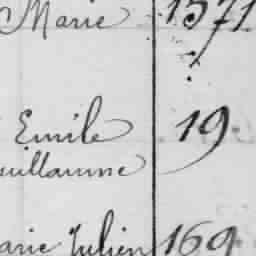 Marie 1571
Emile 19
uillaume
arie Julien 169